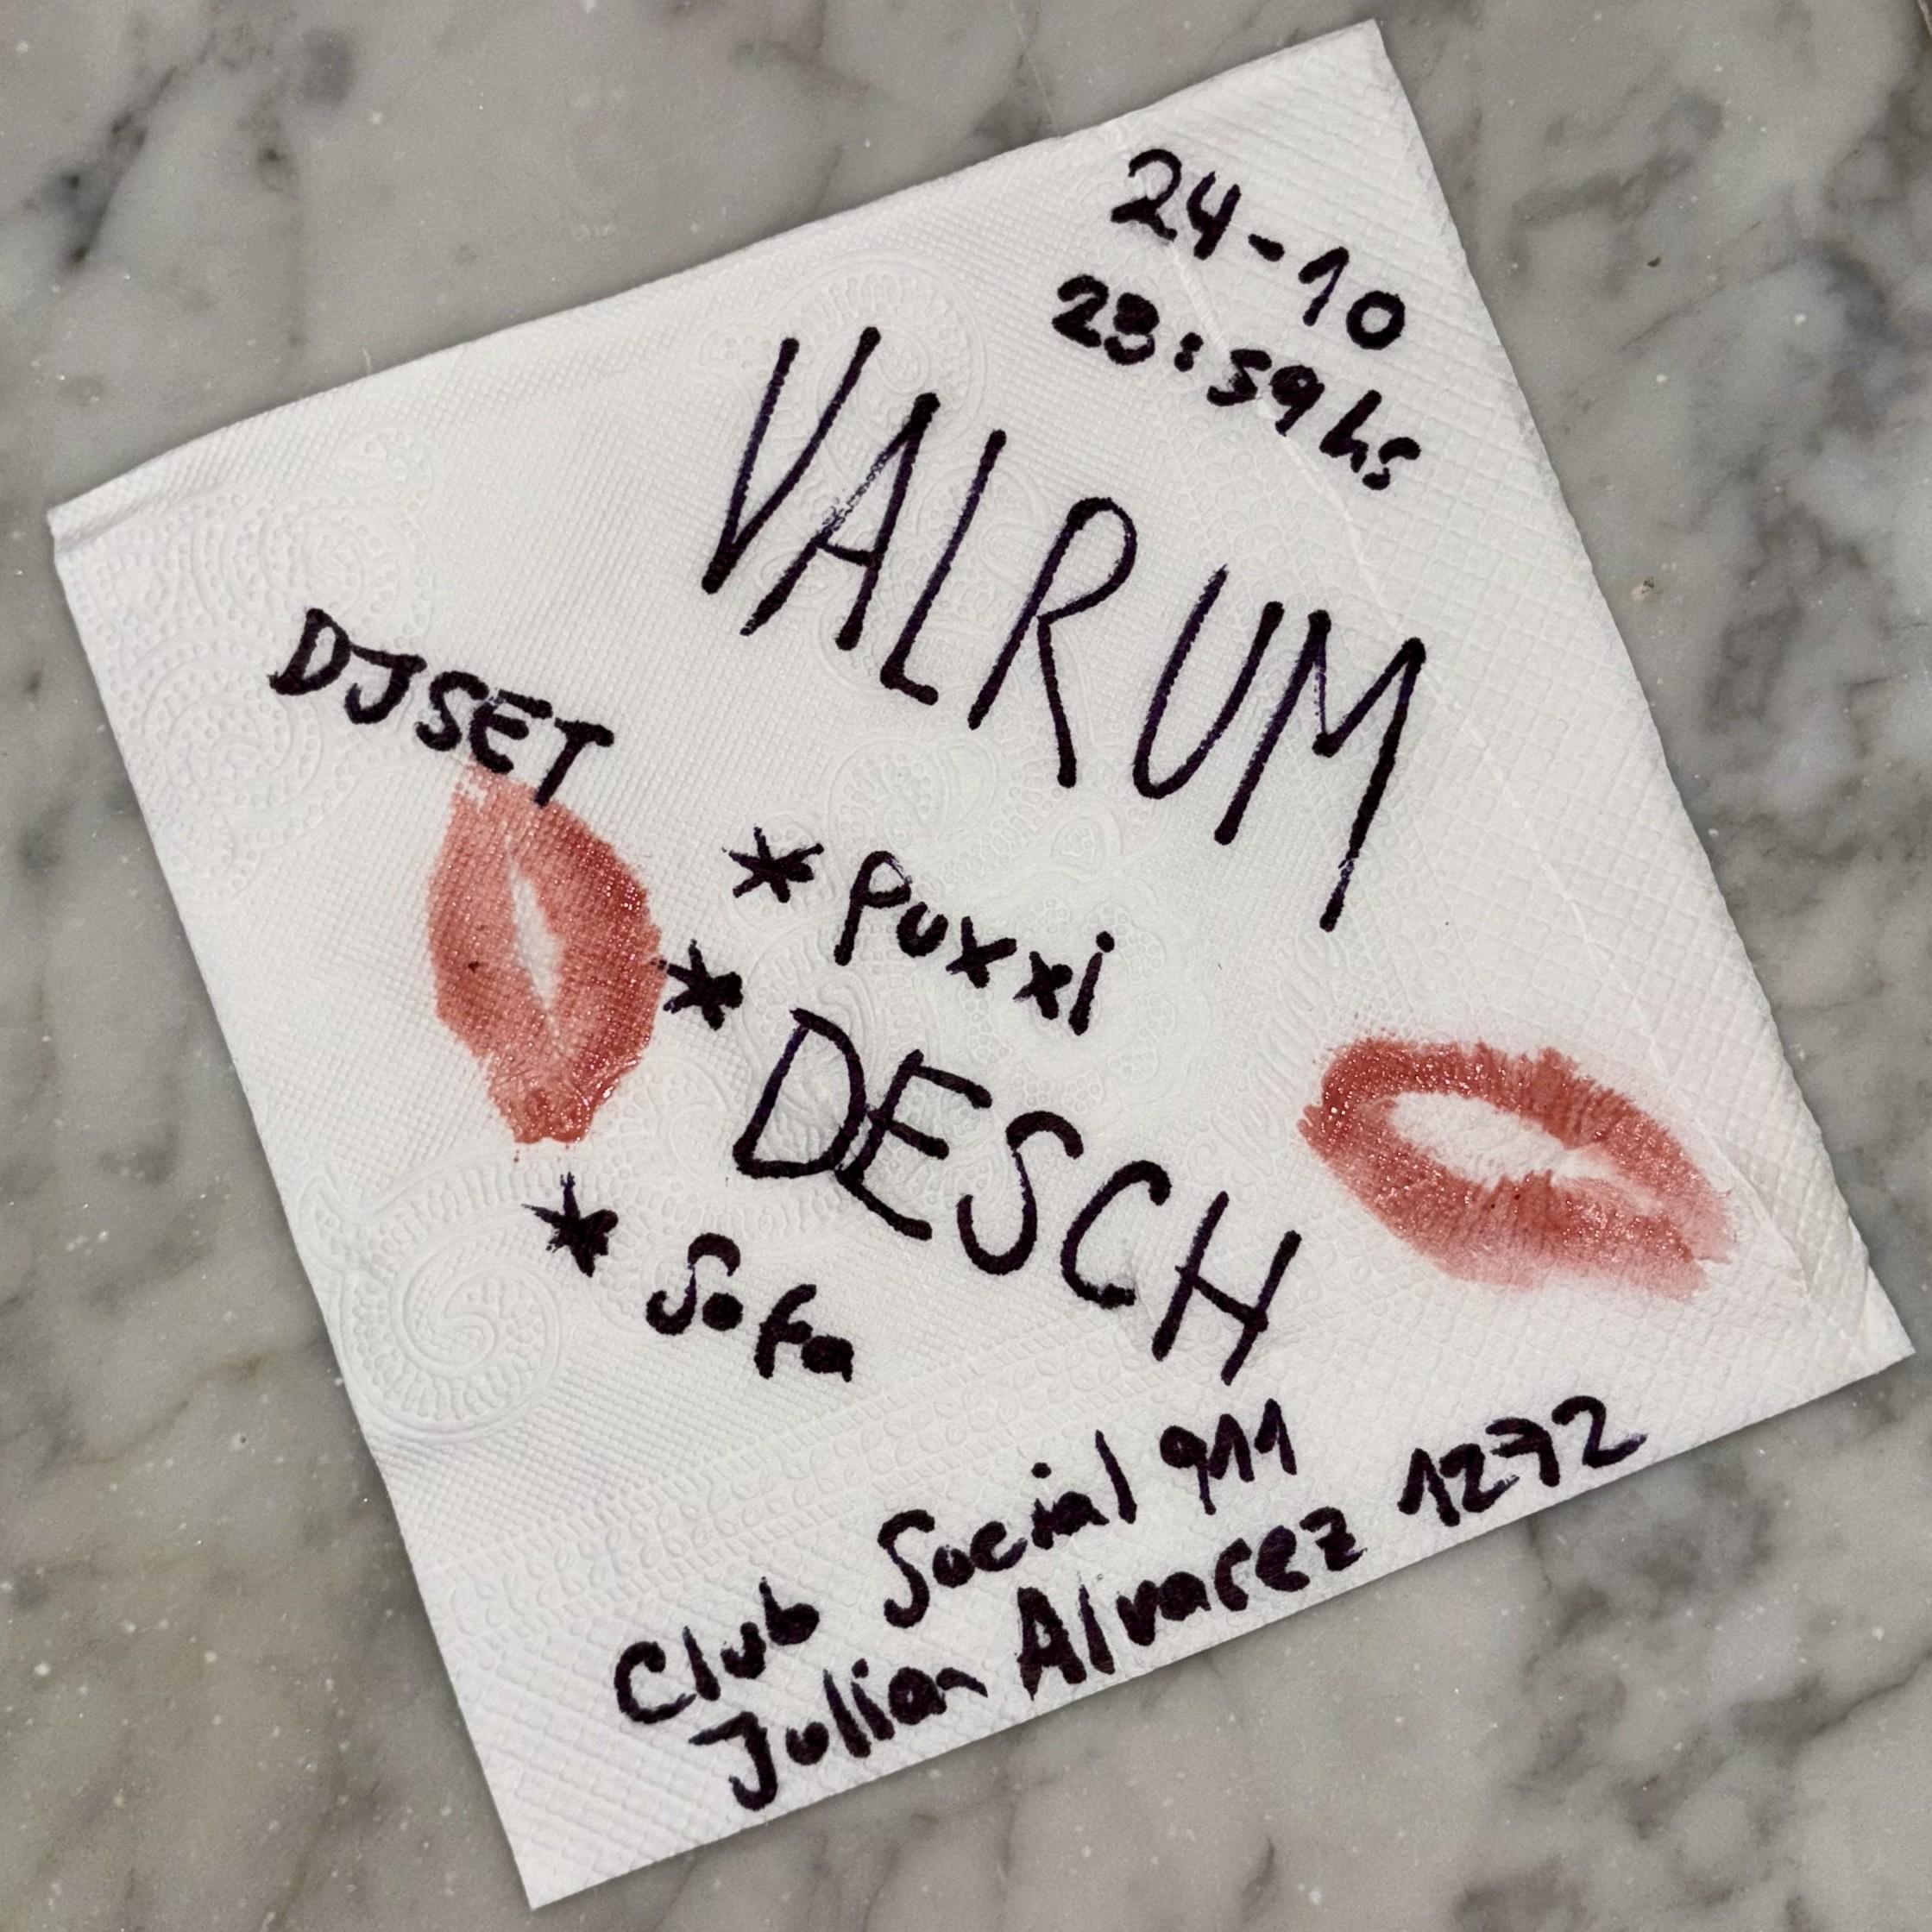 24-10
23:59hs
VALRUM
DJSET
* Puxxi
* DESCH
* Sofa
Club Social 911
Julian Alvarez 1272